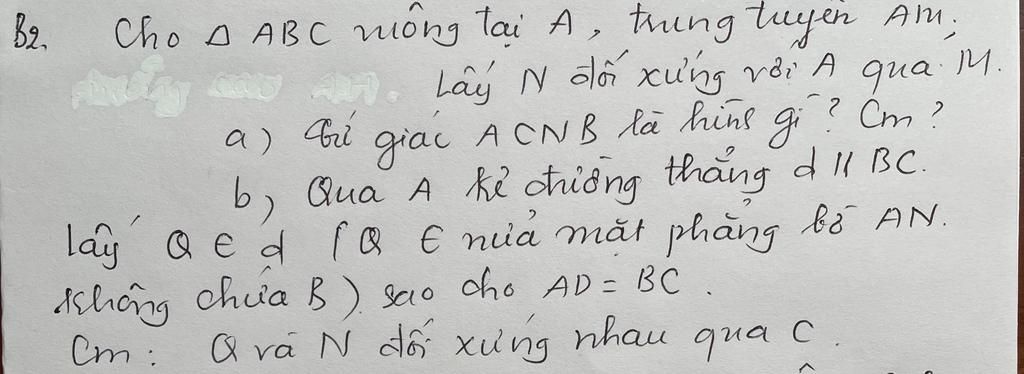 B2. Cho Δ ABC vuông tại A, trung tuyến AM.
Lấy N đối xứng với A qua M.
a) Tứ giác ACNB là hình gì? Cm?
b) Qua A kẻ đường thẳng d // BC.
lấy Q ∈ d (Q ∈ nửa mặt phẳng bờ AN.
không chứa B) sao cho AD = BC.
Cm: Q và N đối xứng nhau qua C.